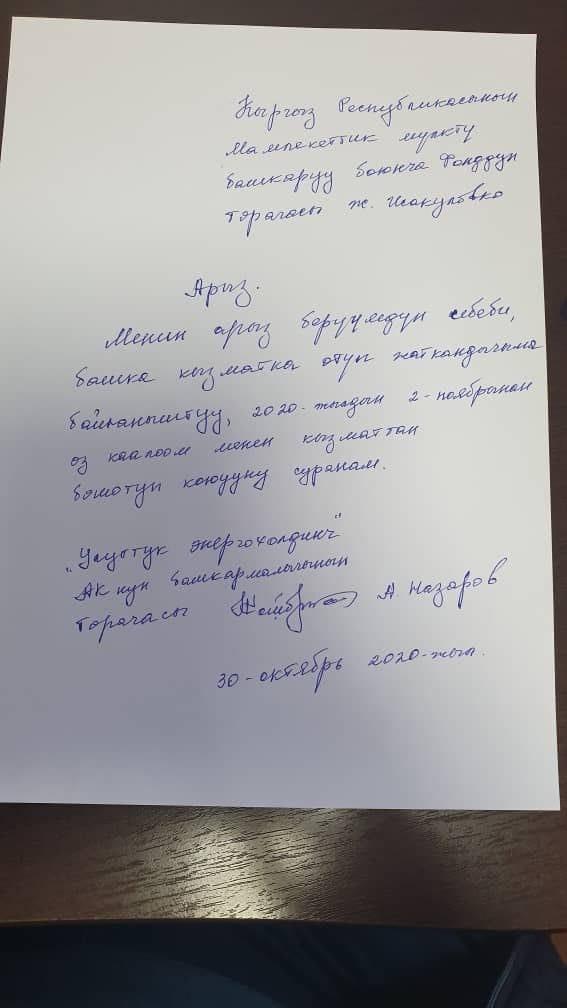 Кыргыз Республикасынын
Мамлекеттик мулкту
башкаруу боюнча Фонддун
торагасы ж. Исакуловко
Арыз.
Менин арыз беруумдун себеби,
башка кызматка отуп жаткандыгыма
байланыштуу, 2020-жылдын 2-ноябрынан
оз каалоом менен кызматтан
бошотуп коюууну суранам.
"Улуттук энергохолдинг"
АКнун башкармалыгынын
торагасы А Назаров
30-октябрь 2020-жыл.